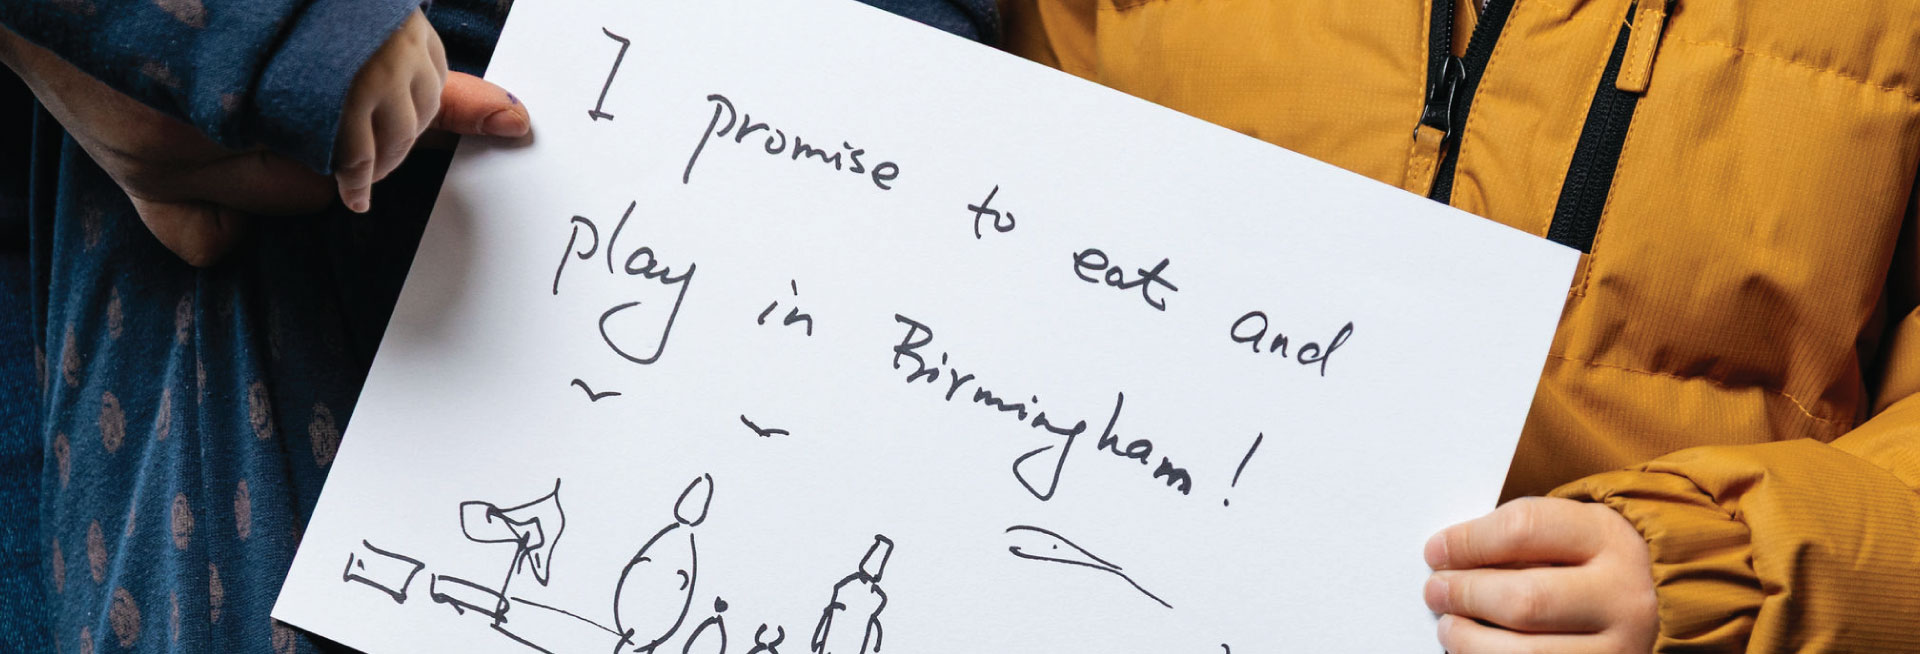 I promise to eat and
play in Birmingham!